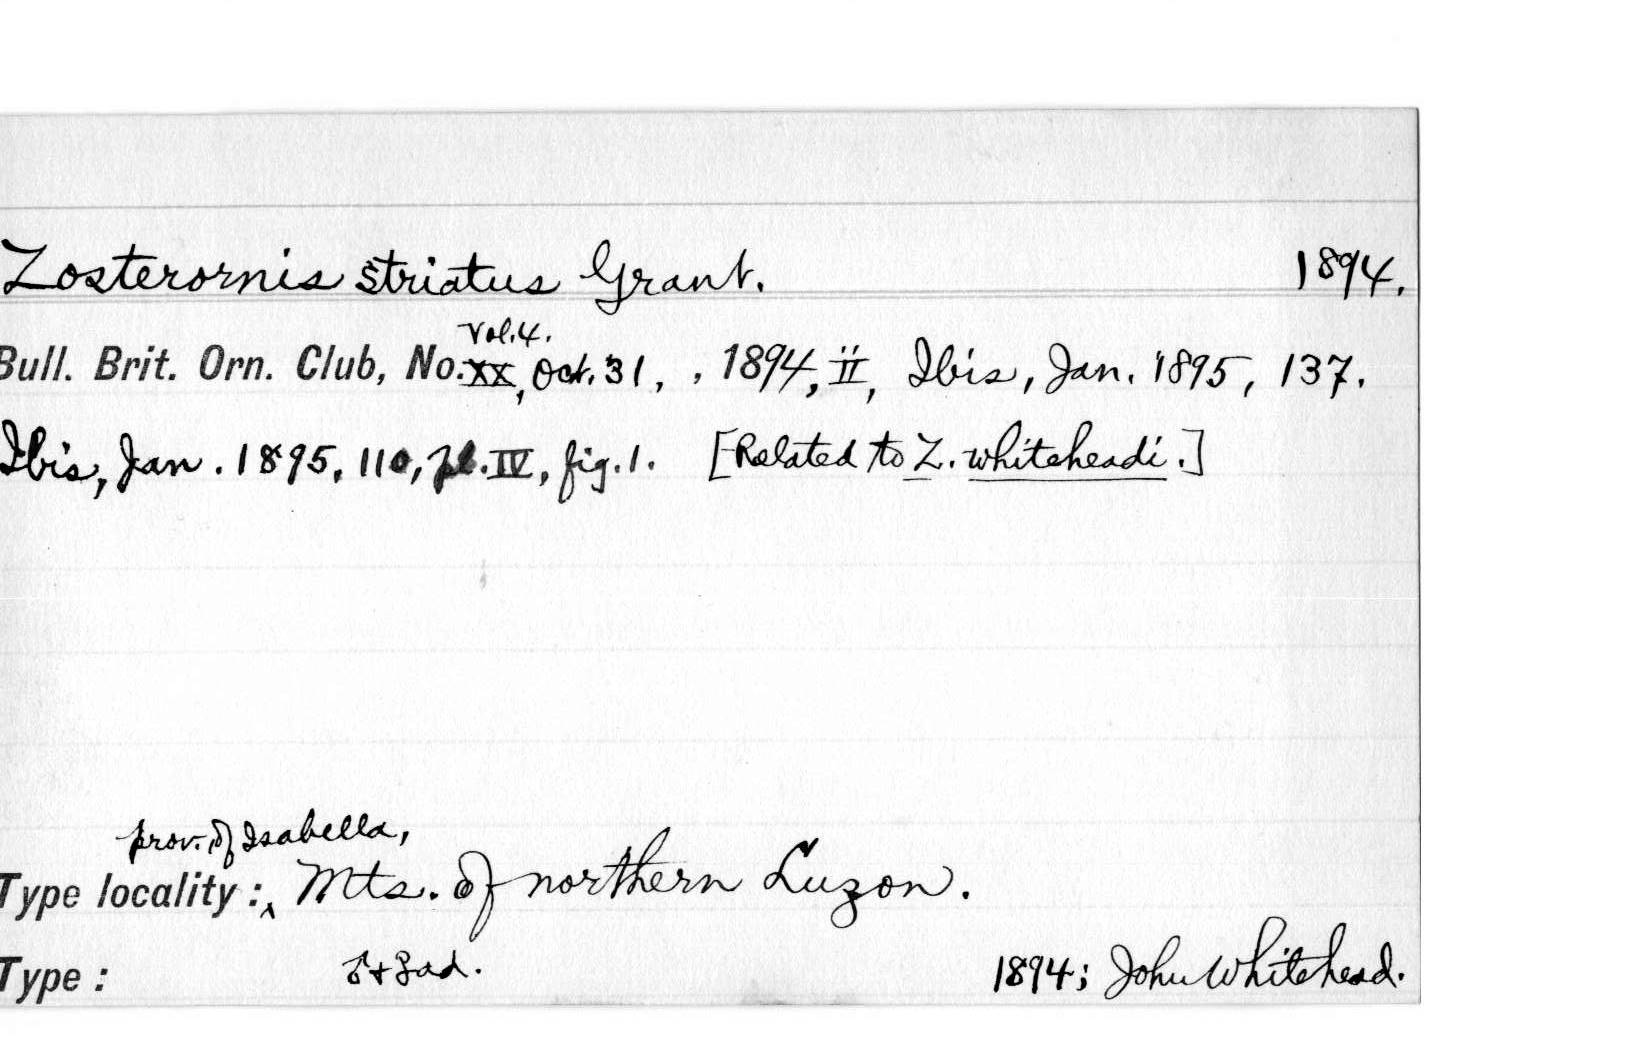 Zosterornis striatus Grant. 1894.
Vol. 4.
Bull. Brit. Orn. Club, No. XX, Oct. 31, , 1894, ii, Ibis, Jan. 1895, 137.
Ibis, Jan. 1895, 110, pl. IV, fig. 1. [Related to Z. whiteheadi.]
prov. of Isabella,
Type locality : ‸ Mts. of northern Luzon.
Type : ♂ + ♀ ad. 1894; John Whitehead.